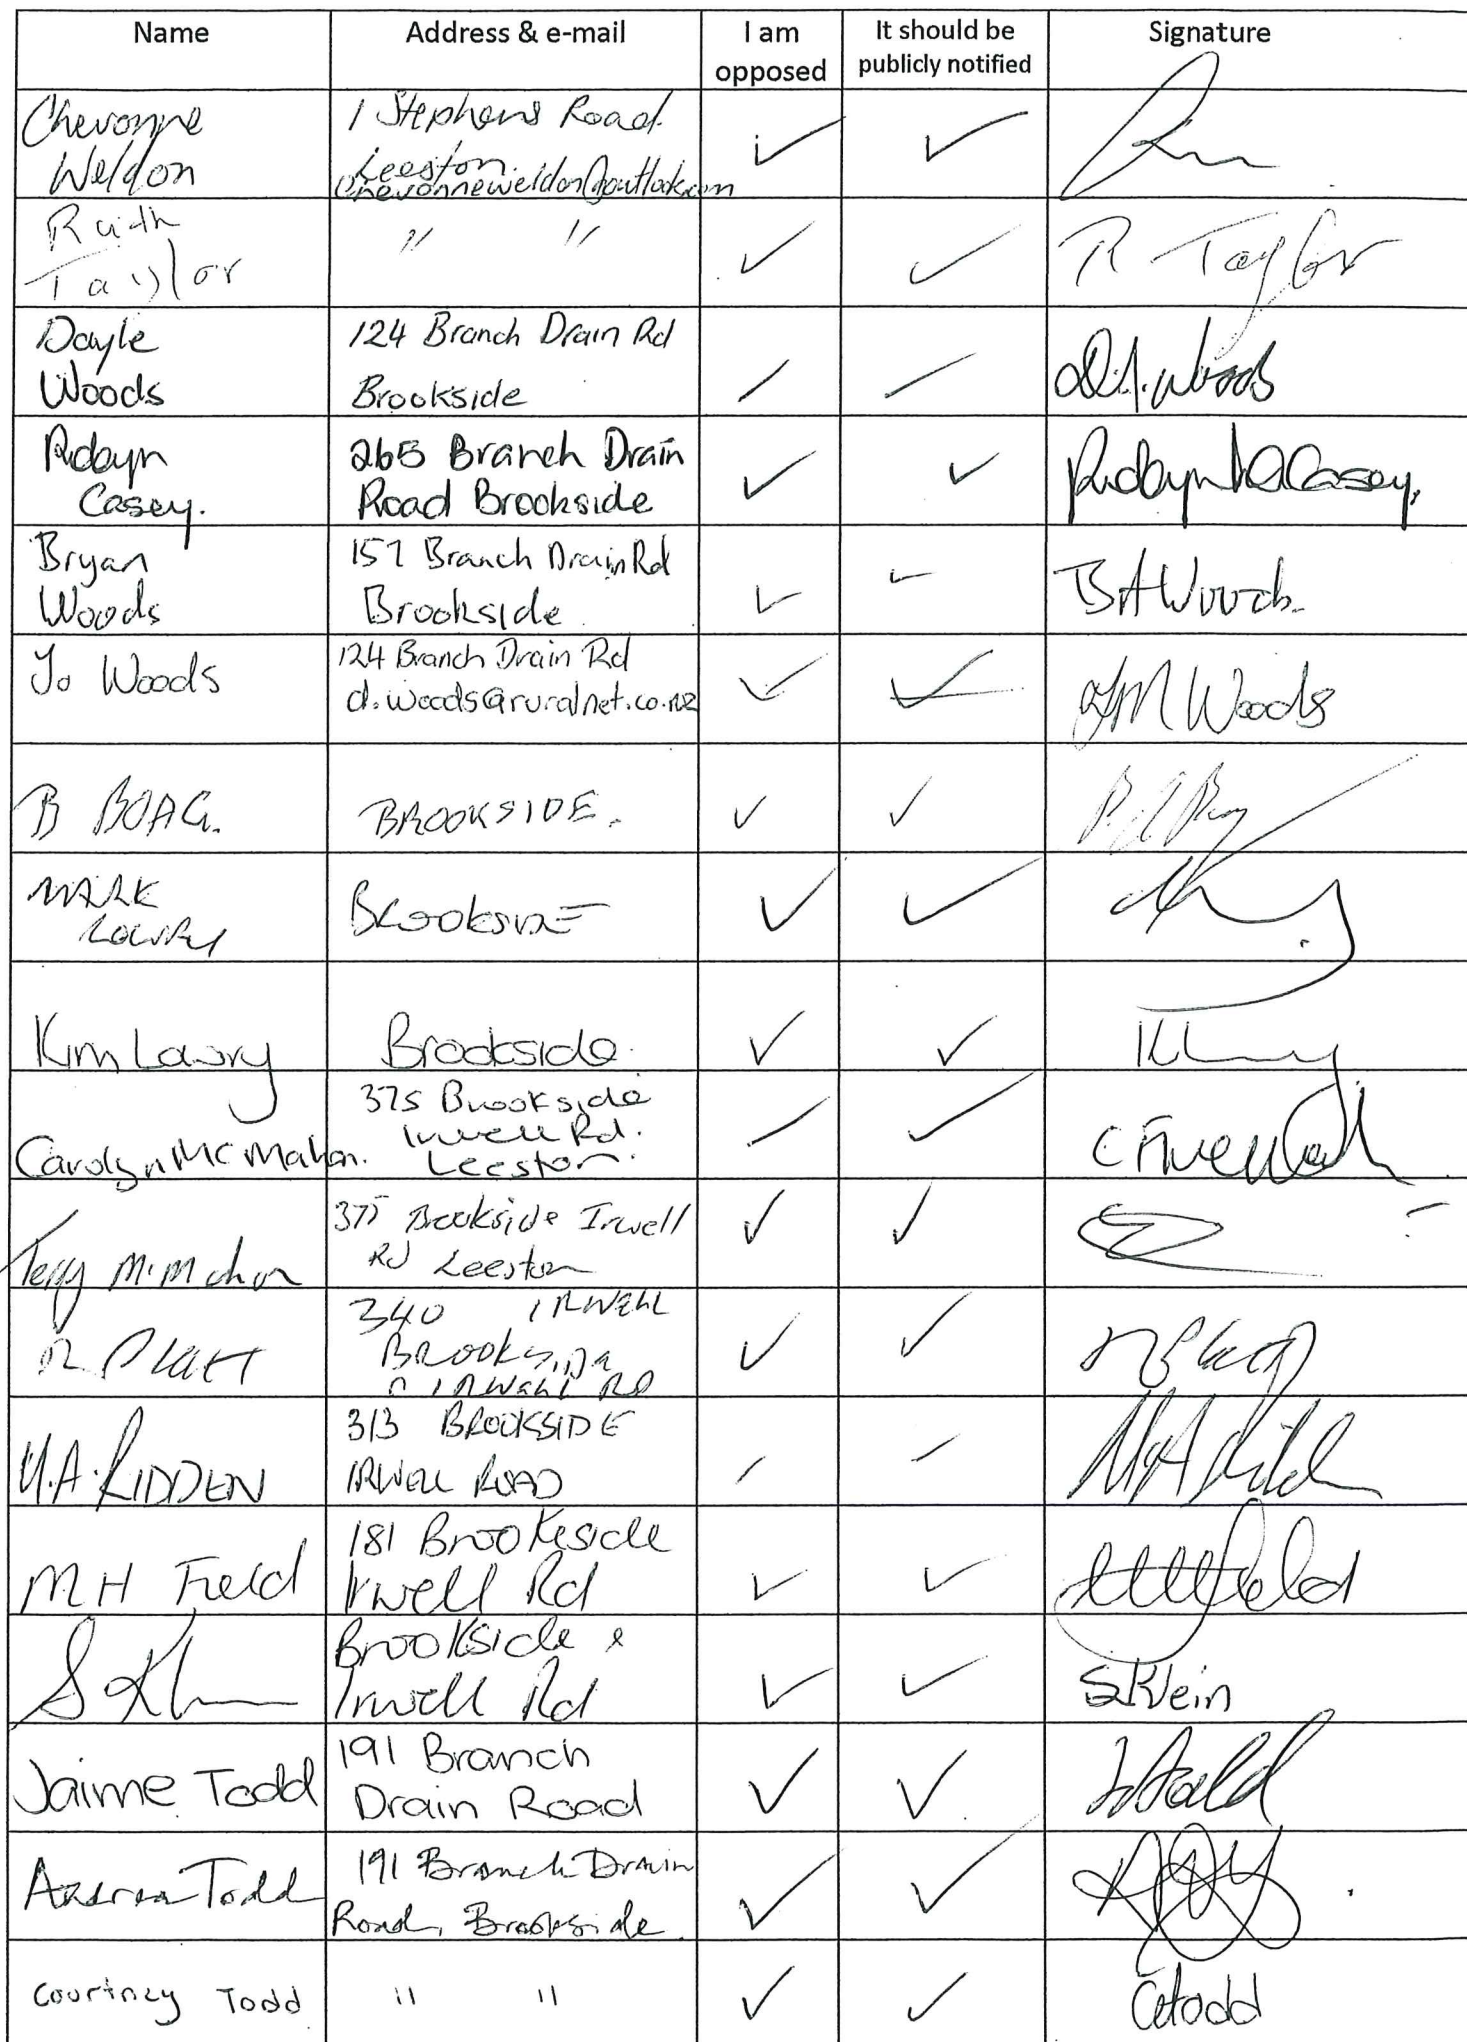 Name Address & e-mail I am opposed It should be publicly notified Signature
Chevonne Weldon 1 Stephens Road Leeston. chevonneweldon@outlook.com
Ruth Taylor " " R Taylor
Doyle Woods 124 Branch Drain Rd Brookside Woods
Robyn Casey. 265 Branch Drain Road Brookside Robyn Casey.
Bryan Woods 157 Branch Drain Rd Brookside BAWoods.
Jo Woods 124 Branch Drain Rd d.woods@ruralnet.co.nz JM Woods
B BOAG. BROOKSIDE.
MARK LOWRY BROOKSIDE
Kim Lowry Brookside.
Carolyn McMahon. 375 Brookside Irwell Rd. Leeston.
Terry McMahon 375 Brookside Irwell Rd Leeston
R Platt 340 IRWELL BROOKSIDE IRWELL RD
M.A. RIDDEN 313 BROOKSIDE IRWELL ROAD
MH Field 181 Brookside Irwell Rd
Brookside & Irwell Rd S Klein
Jaime Todd 191 Branch Drain Road
Andrea Todd 191 Branch Drain Road, Brookside
Courtney Todd " " Todd